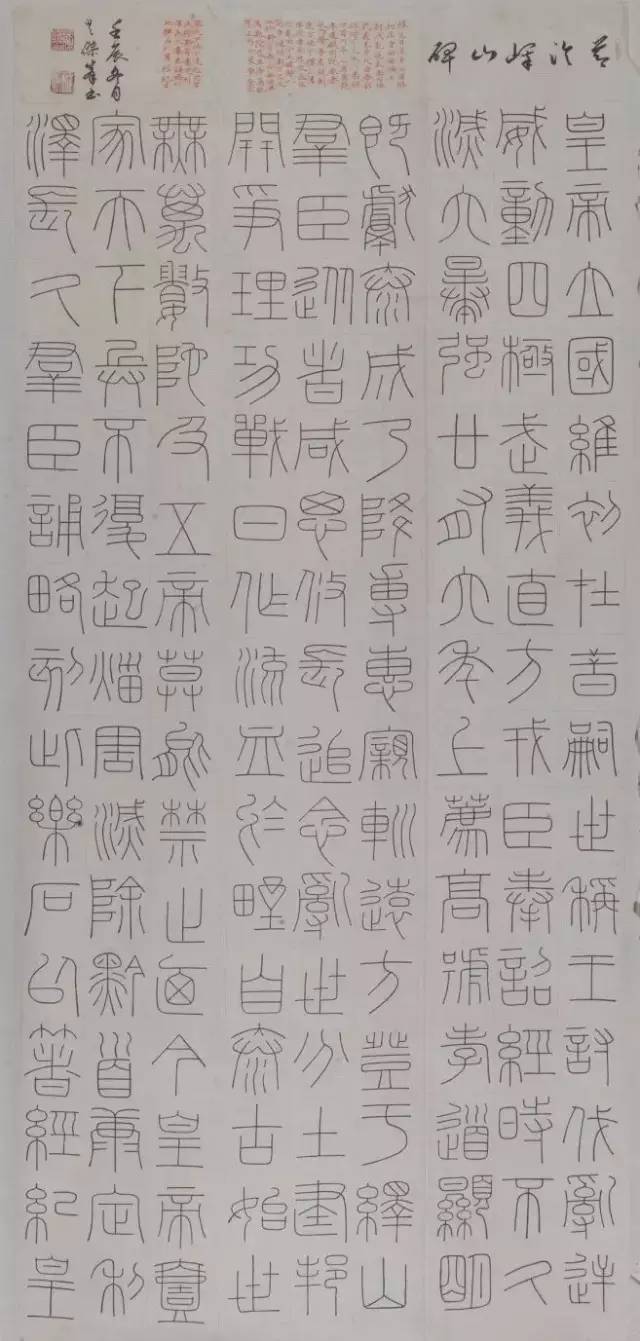 嶧山碑
皇帝立國維初在昔嗣世稱王討伐亂逆
威動四極武義直方戎臣奉詔經時不久
滅六暴強廿有六年上薦高號孝道顯明
既獻泰成乃降尃惠親巡遠方登于繹山
羣臣從者咸思攸長追念亂世分土建邦
開爭理功戰日作流血於野自泰古始世
無萬數陀及五帝莫能禁止廼今皇帝壹
家天下兵不復起災害滅除黔首康定利
澤長久羣臣誦略刻此樂石以著經紀皇
壬辰月
書